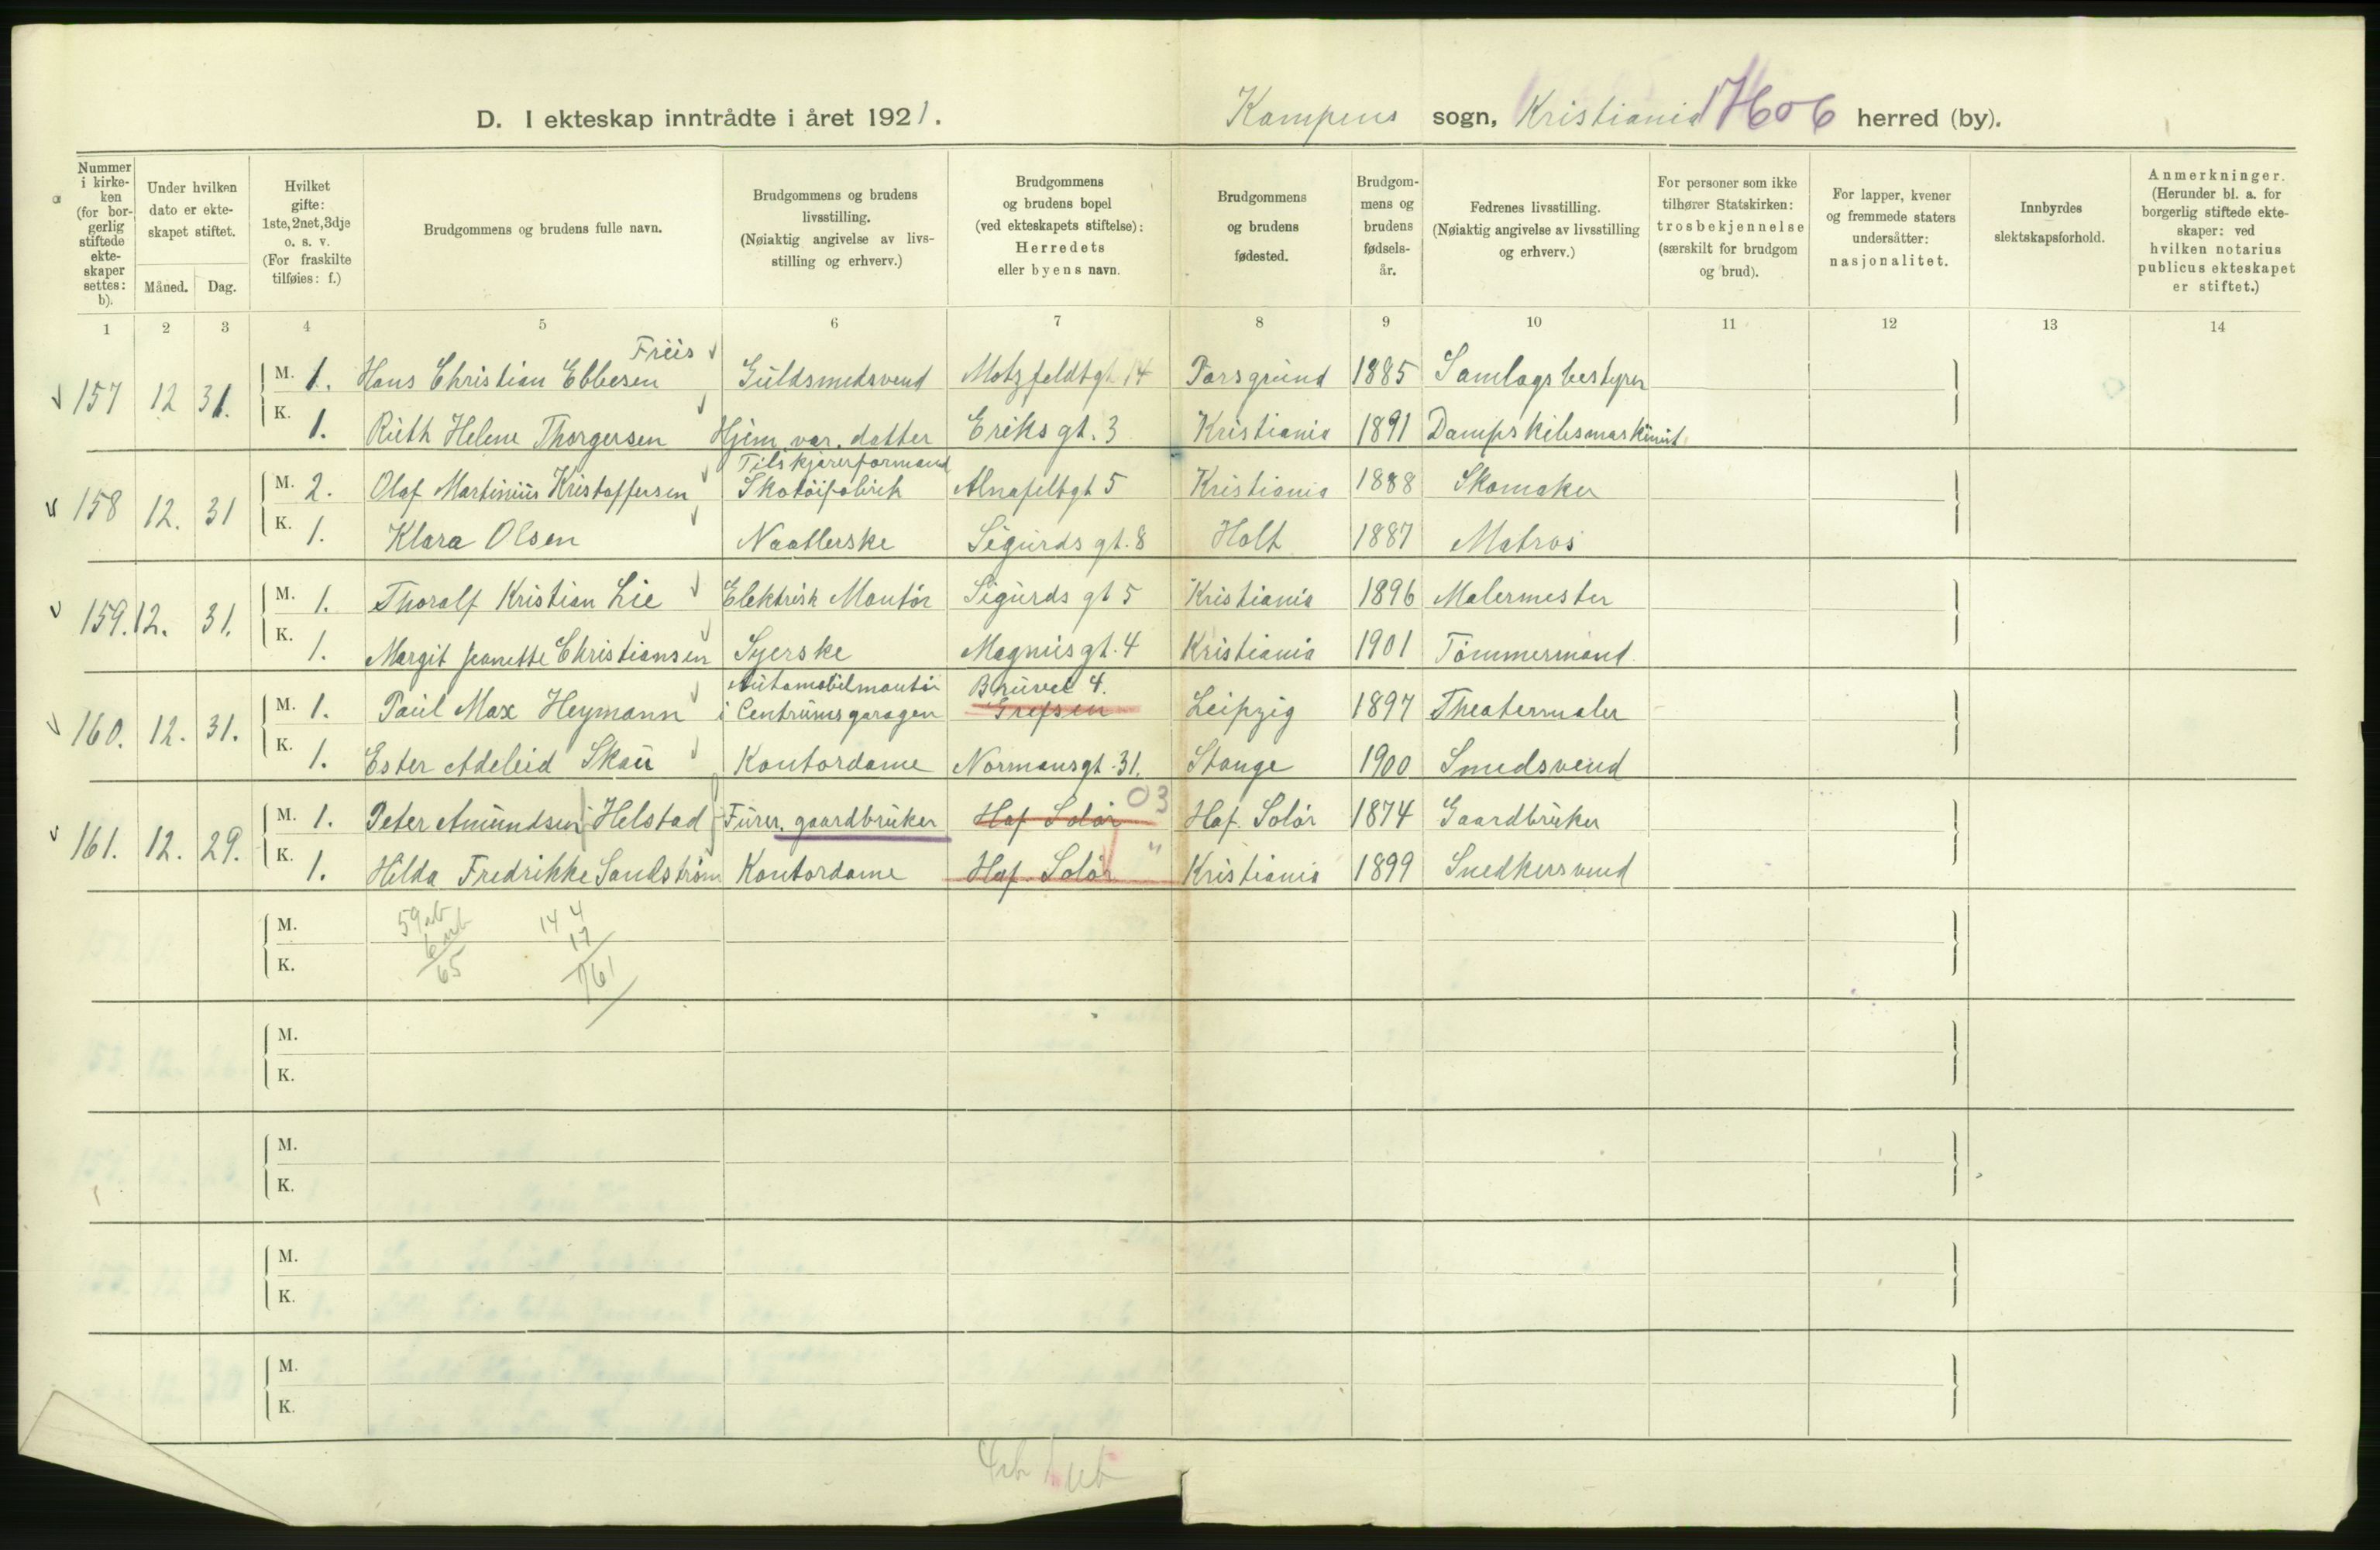 D. I ekteskap inntrådte i året 1921. Kampens sogn, Kristiania herred (by).
Nummer i kirke-ken (for bor-gerlig stiftede ekte-skaper settes: b).
Under hvilken dato er ekte-skapet stiftet.
Måned. Dag.
Hvilket gifte: 1ste, 2net, 3dje o. s. v. (For fraskilte tilføies: f.)
Brudgommens og brudens fulle navn.
Brudgommens og brudens livsstilling. (Nøiaktig angivelse av livs-stilling og erhverv.)
Brudgommens og brudens bopel (ved ekteskapets stiftelse): Herredets eller byens navn.
Brudgommens og brudens fødested.
Brudgom-mens og brudens fødsels-år.
Fedrenes livsstilling. (Nøiaktig angivelse av livsstilling og erhverv.)
For personer som ikke tilhører Statskirken: trosbekjennelse (særskilt for brudgom og brud).
For lapper, kvener og fremmede staters undersåtter: nasjonalitet.
Innbyrdes slektskapsforhold.
Anmerkninger. (Herunder bl. a. for borgerlig stiftede ekte-skaper: ved hvilken notarius publicus ekteskapet er stiftet.)
1 2 3 4 5 6 7 8 9 10 11 12 13 14
Friis
157 12 31. M. 1. Hans Christian Ebbesen Guldsmedsvend Motzfeldtgt. 14 Porsgrund 1885 Samlagsbestyrer
K. 1. Ruth Helene Thorgersen Hjem.vær. datter Eriks gt. 3 Kristiania 1891 Dampskibsmaskinist
Tilskjærerformand
158 12. 31 M. 2. Olaf Martinius Kristoffersen Skotøifabrik Alnafeltgt 5 Kristiania 1888 Skomaker
K. 1. Klara Olsen Naatlerske Sigurds gt. 8 Holt 1887 Matros
159. 12. 31. M. 1. Thoralf Kristian Lie Elektrisk Montør Sigurds gt 5 Kristiania 1896 Malermester
K. 1. Margit Jeanette Christiansen Syerske Magnusgt. 4 Kristiania 1901 Tømmermand
Automobilmontør Bruvei 4.
160. 12. 31. M. 1. Paul Max Heymann i Centrumsgaragen Grefsen Leipzig 1897 Theatermaler
K. 1. Ester Adeleid Skau Kontordame Normansgt. 31. Stange 1900 Smedsvend
03
161. 12. 29. M. 1. Peter Amundsen Helstad Furer. gaardbruker Hof Solør Hof. Solør 1874 Gaardbruker
K. 1. Hilda Fredrikke Sandstrøm Kontordame Hof. Solør " Kristiania 1899 Snedkersvend
M. 144
17
K. 65 161
M.
K.
M.
K.
M.
K.
M.
K.